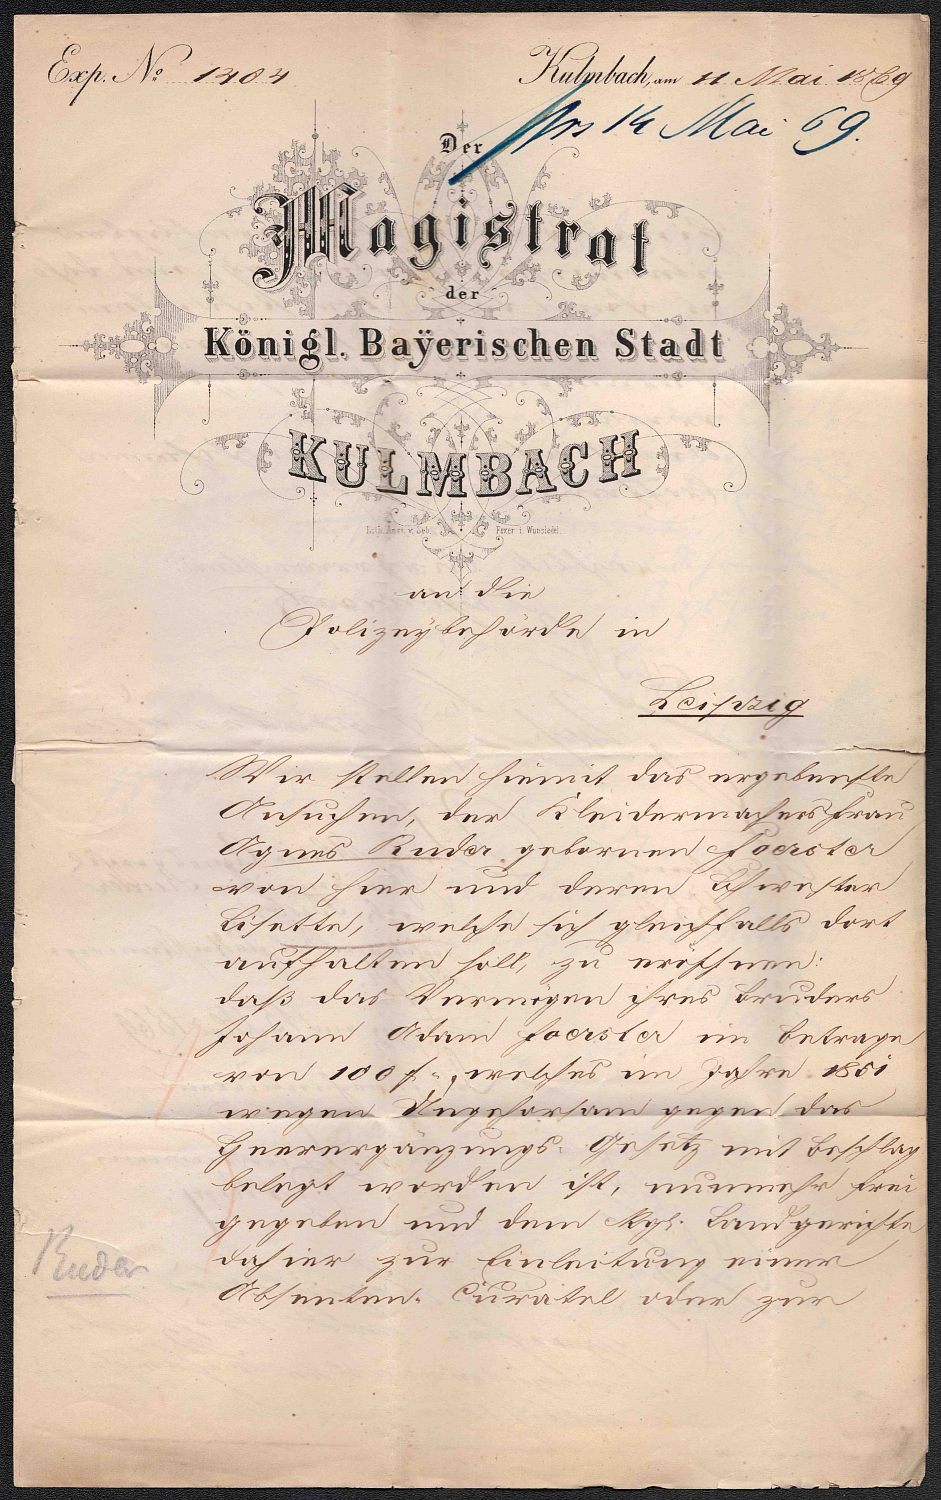 Exp. No 1404
Kulmbach, am 11 Mai 1869
prs 14 Mai 69.
Der
Magistrat
der
Königl. Baÿerischen Stadt
KULMBACH
Lith. Anst. v. Seb. Fexer i. Wunsiedel.
an die
Polizeybehörde in
Leipzig
Wir stellen hiemit das ergebenste
Ansuchen, der Kleidermachersfrau
Agnes Ruder gebornen Foerster
von hier und deren Schwester
Lisette, welche sich gleichfalls dort
aufhalten soll, zu eröffnen:
daß das Vermögen ihres Bruders
Johann Adam Foerster im Betrage
von 100 f -, welches im Jahre 1851
wegen Ungehorsam gegen das
Heerergänzungs-Gesetz mit Beschlag
belegt worden ist, nunmehr frei
gegeben und dem kgl. Landgerichte
dahier zur Einleitung einer
Absenten-Curatel oder zur
Ruder